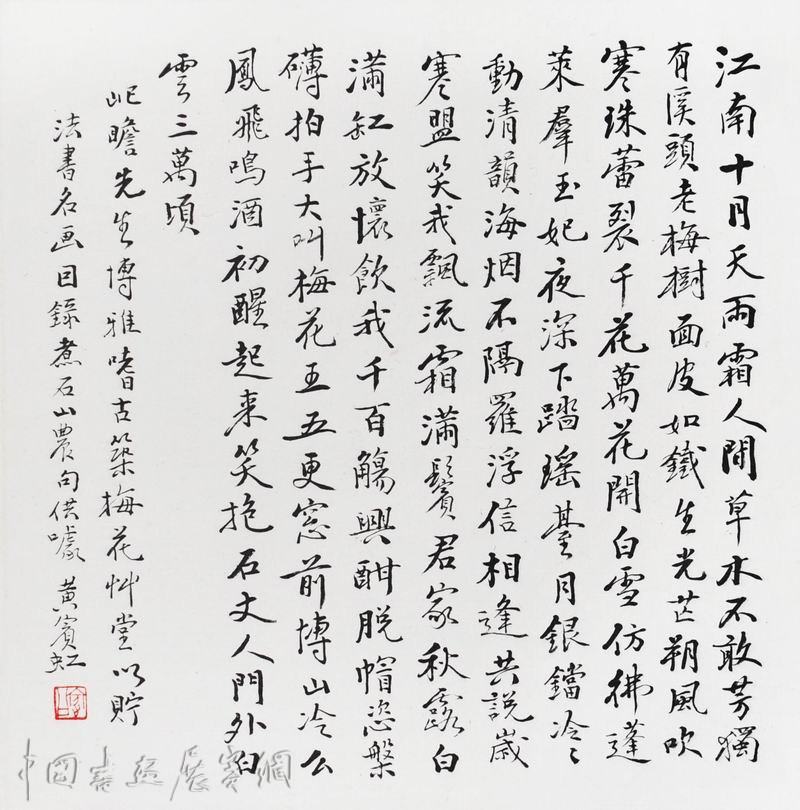 江南十月天雨霜人間草木不敢芳獨
有溪頭老梅樹面皮如鐵生光芒朔風吹
寒珠蕾裂千花萬花開白雪仿彿蓬
萊羣玉妃夜深下踏瑤臺月銀鐺冷冷
動清韻海烟不隔羅浮信相逢共說歲
寒盟笑我飄流霜滿鬢君家秋露白
滿缸放懷飲我千百觴興酣脫帽恣槃
礴拍手大叫梅花王五更窓前博山冷么
鳳飛鳴酒初醒起來笑抱石丈人門外白
雲三萬頃
岠瞻先生博雅嗜古築梅花艸堂以貯
法書名画目錄煮石山農句供噱 黄賓虹
中國書畫展賽網